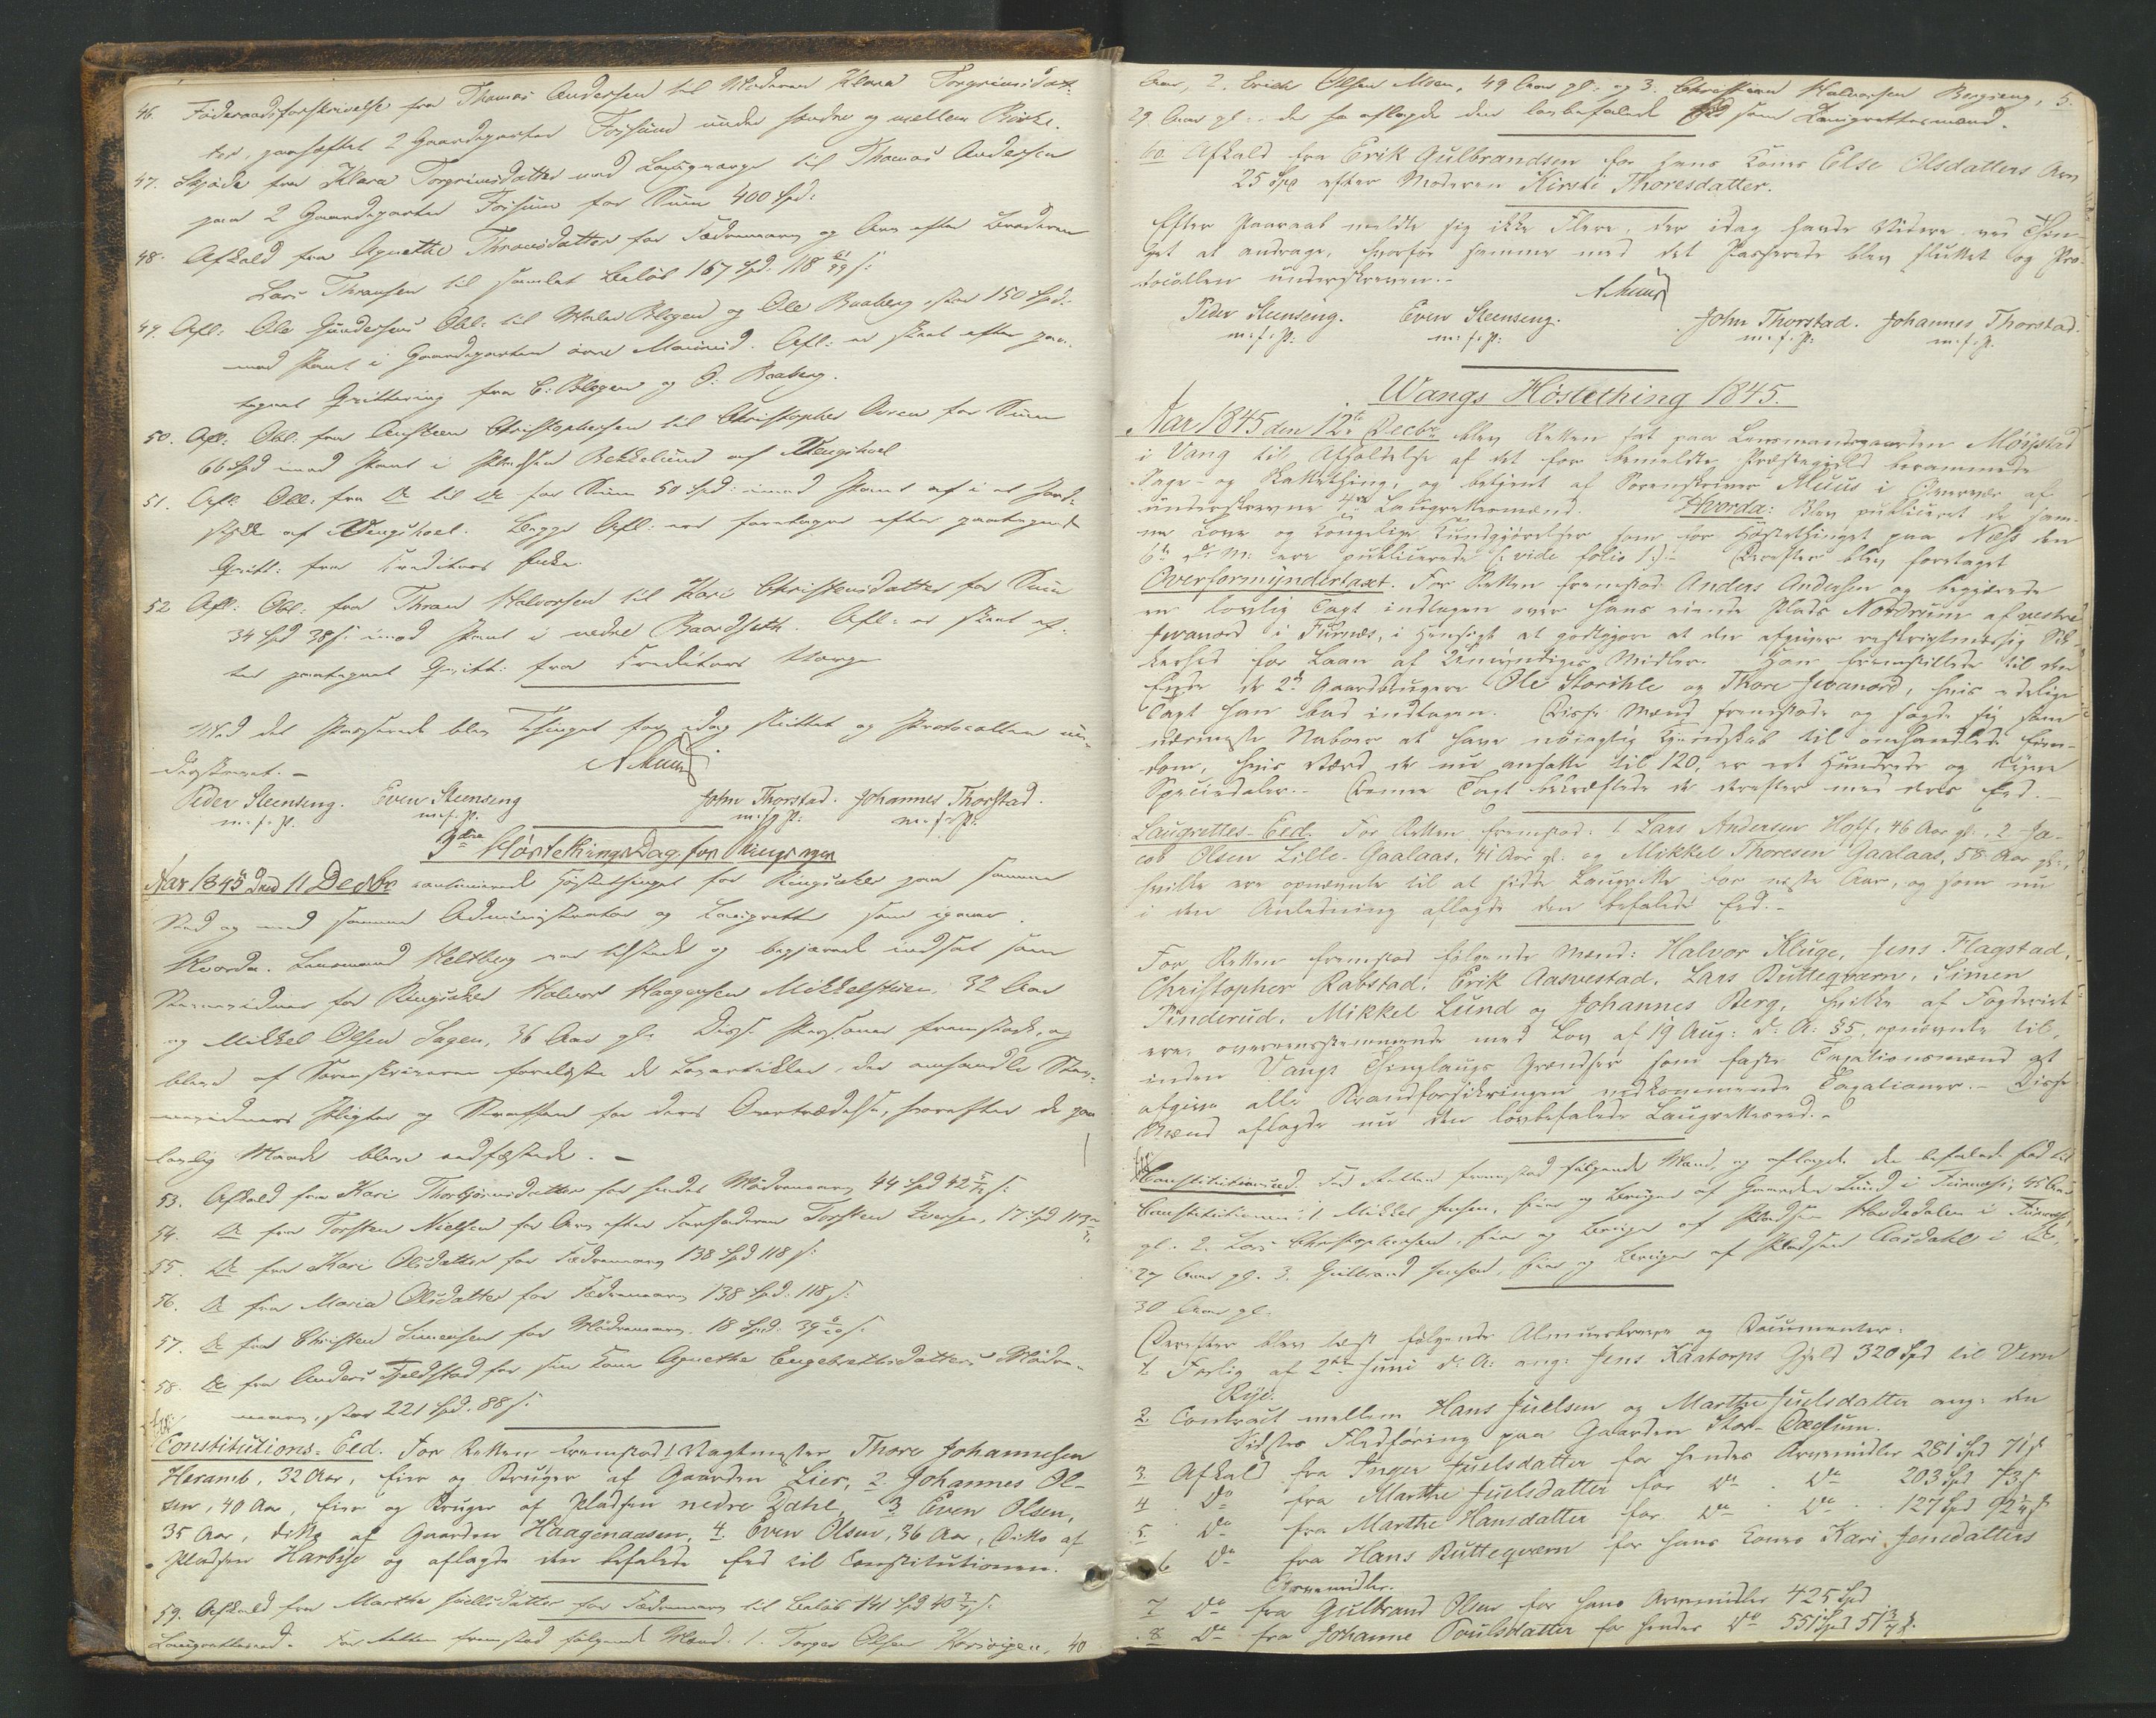 46. Föderaadsforskrivelse fra Thomas Andersen til Moderen Klara Torgrimsdat-
ter, paaheftet 2 Gaardeparter Frisüm under søndre og mellem Kirke.
47. Skjöde fra Klara Torgrimsdatter med Laugværge til Thomas Andersen
paa 2 Gaardeparter Frisüm for Süm 400 Spd:
48. Afkald fra Agnethe Thronsdatter for Fædrenearv og Arv efter Broderen
Lars Thronsen til samlet Beløb 167 Spd. 118 s:
49. Afl: Ole Gundersens Obl: til Blegen og Ole Baaberg stor 150 Spd:
mod Pant i Gaardeparten övre . Afl: er skeet efter paa-
tegnet Qvittering fra C: Blegen og O: Baaberg.
50. Afl: Obl: fra Austeen Christophersen til Christopher for Süm
66 Spd imod Pant i Pladsen Bekkelund af Wengshoel
51. Afl: Obl: fra Do til Do for Süm 50 Spd: imod Pant af i et Jord-
stykke af Wengshoel. Begge Afl: ere foretagne efter paategnede
Qvitt: fra Creditors Enke.
52 Afl: Obl: fra Thron Halvorsen til Kari Christensdatter for Süm
34 Spd 38 s: imod Pant i nedre Baardseth. Afl: er skeet ef-
ter paategnet Qvitt: fra Creditors Værge
Med det Passerede blev Thinget for idag sluttet og Protocollen un-
derskrevet. –
AMuus
Peder Steenseng. Even Steenseng John Thorstad. Johannes Thorstad.
m. f. P. m. f. P. m. f. P. m. f. P.
3die Høstethingsdag for Ringsager
Aar 1845 den 11 Decbr continuerede Høstethinget for Ringsaker paa samme
Sted og med samme Administrator og Laugrette som igaar.
Hvorda. Lensmand Heltberg var tilstede og begjærede indsat som
Stævnevidner for Ringsaker Halvor Haagensen Mikkelstuen, 32 Aar
og Mikkel Olsen Sagen, 36 Aar gl. Disse Personer fremstode, og
bleve af Sorenskriveren forelæste de Lovartikler, der omhandle Stæv-
nevidners Pligter og Straffen for deres Overtrædelse, hvorefter de paa
lovlig Maade bleve edfæstede. –
53. Afkald fra Kari Thorbjörnsdatter for hendes Mödrenearv 44 Spd 42 s:
54. Do fra Torsten Nielsen for Arv efter Farfaderen Torsten Iversen, 17 Spd 113
55. Do fra Kari Olsdatter for Fædrenearv 138 Spd 118 s:
56. Do fra Maria Olsdatter for Fædrenearv 138 Spd: 118 s:
57. Do fra Christen Simensen for Mödrenearv. 18 Spd: 39 s:
58. Do fra Anders Fjeldstad for sin Kone Agnethe Engebrethsdatters Mödre-
nearv, stor 221 Spd. 88 s:
Constitutions-Eed. For Retten fremstod 1 Vagtmester Thore Johannesen
Heramb, 32 Aar, Eier og Bruger af Gaarden Lier, 2 Johannes Ol-
sen, 40 Aar, Eier og Bruger af Pladsen nedre Dahl, 3 Even Olsen,
35 Aar, ditto af Gaarden Haagenaasen, 4. Even Olsen, 36 Aar, Ditto af
Pladsen Harbye og aflagde den befalede Eed til Constitutionen.
59. Afkald fra Marthe Juelsdatter for Fædrenearv til Beløb 141 Spd 40 s
Laugretteseed. For Retten fremstod følgende Mænd. 1. Torger Olsen , 40
Aar, 2. Erich Olsen Moen, 49 Aar gl: og 3. Christian Halvorsen Bergseng, 5.
29 Aar gl: der ha aflagde den lovbefalede Eed som Laugrettesmænd.
60. Afkald fra Erik Gulbrandsen for hans Kones Else Olsdatters Arv
25 Spd efter Moderen Kirsti Thoresdatter.
Efter Paaraab meldte sig ikke Flere, der idag havde Videre ved Thin-
get at andrage, hvorfor samme med det Passerede blev sluttet og Pro-
tocollen underskreven. –
AMuus
Peder Steenseng. Even Steenseng. John Thorstad. Johannes Thorstad.
m. f. P: m. f. P: m. f. P: m. f. P.
Wangs Höstething 1845.
Aar 1845 den 12te Decbr blev Retten sat paa Lensmandsgaarden Möystad
i Vang til Afholdelse af det for bemeldte Præstegield berammede
Sage- og Skattething, og betjent af Sorenskriver Muus i Overvær af
underskrevne 4re Laugrettesmænd. Hvorda: Blev publiceret de sam-
me Love og kongelige Kundgjörelser som for Höstethinget paa Næs den
6te d: M: ere publicerede (: vide folio 1 :) – Derefter blev foretaget
Overformyndertaxt. For Retten fremstod Anders Andersen og begjærede
en lovlig Taxt indtagen over hans eiende Plads Nordrum af vestre
Jevanord i Furnæs, i Hensigt at godtgjöre at den afgiver reskriptmæssig Sik-
kerhed for Laan af Umyndiges Midler. Han fremstillede til den
Ende de 2de Gaardbrugere Ole Storihle og Thore Jevanord, hvis edelige
Taxt han bad indtagen. Disse Mænd fremstode og sagde sig som
nærmeste Naboer at have nöiagtig Kjendskab til omhandlede Eien-
dom, hvis Værd de nu ansatte til 120, er eet Hundrede og Tyve
Speciedaler. – Denne Taxt bekræftede de derefter med deres Eed. –
Laugrettes-Eed. For Retten fremstod: 1. Lars Andersen Hoff, 46 Aar gl. 2 Ja-
cob Olsen Lille-Gaalaas, 41 Aar gl: og Mikkel Thoresen Gaalaas, 58 Aar gl:,
hvilke ere opnævnte til at sidde Laugrette for næste Aar, og som nu
i den Anledning aflagde den befalede Eed. –
For Retten fremstod følgende Mænd: Halvor Kluge, Jens Flagstad,
Christopher Rabstad, Erik Aasvestad, Lars Butteqværn, Simen
Pinderud, Mikkel Lund og Johannes Berg, hvilke af Fogderiet
ere, overensstemmende med Lov af 19 Aug: d: A: §5, opnævnte til,
inden Vangs Thinglaugs Grændser som faste Taxationsmænd at
afgive alle Brandforsikringen vedkommende Taxationer. – Disse
Mænd aflagde nu den lovbefalede Laugretteseed. –
Constitutionseed. For Retten fremstod følgende Mænd, og aflagde den befalede Eed til
Constitutionen: 1 Mikkel Jensen, Eier og Bruger af Gaarden Lund i Furnæs, 45 Aar
gl. 2. Lars Christophersen, Eier og Bruger af Pladsen i Furnæs,
27 Aar gl. 3. Gulbrand Jensen, Eier og Bruger af Pladsen Aasdahl i Do,
30 Aar gl.
Derefter blev læst følgende Almuesbreve og Documenter:
1. Forlig af 2den Juni d: A: ang: Jens Kaatorps Gjeld 320 Spd til Vern
Rye.
2. Contract mellem Hans Juelsen og Marthe Juelsdatter ang: den
Sidstes Fledföring paa Gaarden Stor-Dæglum.
3. Afkald fra Inger Juelsdatter for hendes Arvemidler 281 Spd 71 s
4 Do fra Marthe Juelsdatter for Do Do 203 Spd 73 s
5. Do fra Marthe Hansdatter for Do Do 127 Spd 92 s
6 Do fra Hans Butteqværn for hans Kones Kari Jensdatters
Arvemidler.
7 Do fra Gulbrand Olsen for hans Arvemidler 425 Spd
8 Do fra Johanne Poulsdatter for hendes Do 551 Spd 51 3/7 s.